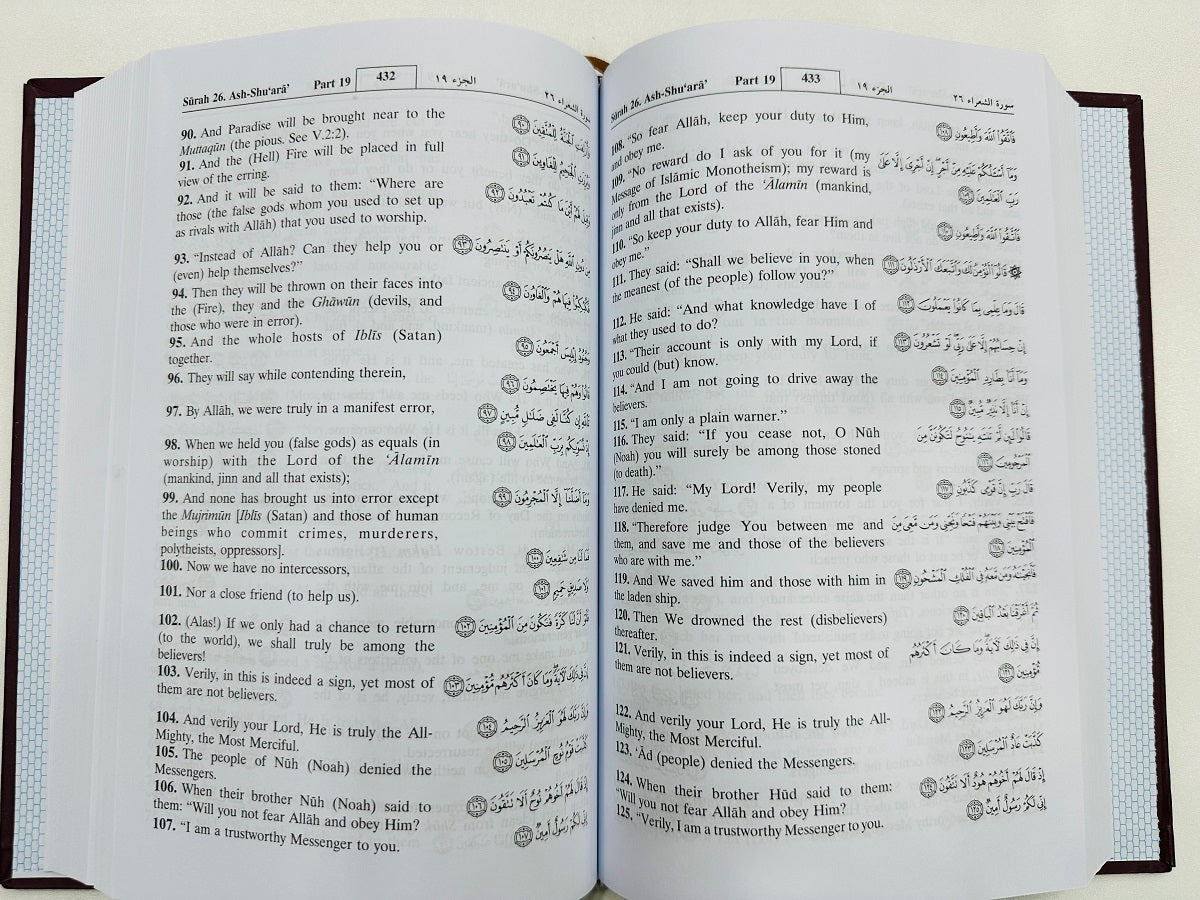 Sūrah 26. Ash-Shu‘arā’ Part 19 432 الجزء ١٩ سورة الشعراء ٢٦
90. And Paradise will be brought near to the
Muttaqūn (the pious. See V.2:2).
91. And the (Hell) Fire will be placed in full
view of the erring.
92. And it will be said to them: “Where are
those (the false gods whom you used to set up
as rivals with Allāh) that you used to worship.
93. “Instead of Allāh? Can they help you or
(even) help themselves?”
94. Then they will be thrown on their faces into
the (Fire), they and the Ghāwūn (devils, and
those who were in error).
95. And the whole hosts of Iblīs (Satan)
together.
96. They will say while contending therein,
97. By Allāh, we were truly in a manifest error,
98. When we held you (false gods) as equals (in
worship) with the Lord of the ‘Ālamīn
(mankind, jinn and all that exists);
99. And none has brought us into error except
the Mujrimūn [Iblīs (Satan) and those of human
beings who commit crimes, murderers,
polytheists, oppressors].
100. Now we have no intercessors,
101. Nor a close friend (to help us).
102. (Alas!) If we only had a chance to return
(to the world), we shall truly be among the
believers!
103. Verily, in this is indeed a sign, yet most of
them are not believers.
104. And verily your Lord, He is truly the All-
Mighty, the Most Merciful.
105. The people of Nūh (Noah) denied the
Messengers.
106. When their brother Nūh (Noah) said to
them: “Will you not fear Allāh and obey Him?
107. “I am a trustworthy Messenger to you.
وَأُزْلِفَتِ الْجَنَّةُ لِلْمُتَّقِينَ ٩٠
وَبُرِّزَتِ الْجَحِيمُ لِلْغَاوِينَ ٩١
وَقِيلَ لَهُمْ أَيْنَ مَا كُنتُمْ تَعْبُدُونَ ٩٢
مِن دُونِ اللَّهِ هَلْ يَنصُرُونَكُمْ أَوْ يَنتَصِرُونَ ٩٣
فَكُبْكِبُوا فِيهَا هُمْ وَالْغَاوُونَ ٩٤
وَجُنُودُ إِبْلِيسَ أَجْمَعُونَ ٩٥
قَالُوا وَهُمْ فِيهَا يَخْتَصِمُونَ ٩٦
تَاللَّهِ إِن كُنَّا لَفِي ضَلَالٍ مُّبِينٍ ٩٧
إِذْ نُسَوِّيكُم بِرَبِّ الْعَالَمِينَ ٩٨
وَمَا أَضَلَّنَا إِلَّا الْمُجْرِمُونَ ٩٩
فَمَا لَنَا مِن شَافِعِينَ ١٠٠
وَلَا صَدِيقٍ حَمِيمٍ ١٠١
فَلَوْ أَنَّ لَنَا كَرَّةً فَنَكُونَ مِنَ الْمُؤْمِنِينَ ١٠٢
إِنَّ فِي ذَٰلِكَ لَآيَةً وَمَا كَانَ أَكْثَرُهُم مُّؤْمِنِينَ ١٠٣
وَإِنَّ رَبَّكَ لَهُوَ الْعَزِيزُ الرَّحِيمُ ١٠٤
كَذَّبَتْ قَوْمُ نُوحٍ الْمُرْسَلِينَ ١٠٥
إِذْ قَالَ لَهُمْ أَخُوهُمْ نُوحٌ أَلَا تَتَّقُونَ ١٠٦
إِنِّي لَكُمْ رَسُولٌ أَمِينٌ ١٠٧
Sūrah 26. Ash-Shu‘arā’ Part 19 433 الجزء ١٩ سورة الشعراء ٢٦
108. “So fear Allāh, keep your duty to Him,
and obey me.
109. “No reward do I ask of you for it (my
Message of Islāmic Monotheism); my reward is
only from the Lord of the ‘Ālamīn (mankind,
jinn and all that exists).
110. “So keep your duty to Allāh, fear Him and
obey me.”
111. They said: “Shall we believe in you, when
the meanest (of the people) follow you?”
112. He said: “And what knowledge have I of
what they used to do?
113. “Their account is only with my Lord, if
you could (but) know.
114. “And I am not going to drive away the
believers.
115. “I am only a plain warner.”
116. They said: “If you cease not, O Nūh
(Noah) you will surely be among those stoned
(to death).”
117. He said: “My Lord! Verily, my people
have denied me.
118. “Therefore judge You between me and
them, and save me and those of the believers
who are with me.”
119. And We saved him and those with him in
the laden ship.
120. Then We drowned the rest (disbelievers)
thereafter.
121. Verily, in this is indeed a sign, yet most of
them are not believers.
122. And verily your Lord, He is truly the All-
Mighty, the Most Merciful.
123. ‘Ād (people) denied the Messengers.
124. When their brother Hūd said to them:
“Will you not fear Allāh and obey Him?
125. “Verily, I am a trustworthy Messenger to you.
فَاتَّقُوا اللَّهَ وَأَطِيعُونِ ١٠٨
وَمَا أَسْأَلُكُمْ عَلَيْهِ مِنْ أَجْرٍ إِنْ أَجْرِيَ إِلَّا عَلَىٰ
رَبِّ الْعَالَمِينَ ١٠٩
فَاتَّقُوا اللَّهَ وَأَطِيعُونِ ١١٠
۞ قَالُوا أَنُؤْمِنُ لَكَ وَاتَّبَعَكَ الْأَرْذَلُونَ ١١١
قَالَ وَمَا عِلْمِي بِمَا كَانُوا يَعْمَلُونَ ١١٢
إِنْ حِسَابُهُمْ إِلَّا عَلَىٰ رَبِّي لَوْ تَشْعُرُونَ ١١٣
وَمَا أَنَا بِطَارِدِ الْمُؤْمِنِينَ ١١٤
إِنْ أَنَا إِلَّا نَذِيرٌ مُّبِينٌ ١١٥
قَالُوا لَئِن لَّمْ تَنتَهِ يَا نُوحُ لَتَكُونَنَّ مِنَ
الْمَرْجُومِينَ ١١٦
قَالَ رَبِّ إِنَّ قَوْمِي كَذَّبُونِ ١١٧
فَافْتَحْ بَيْنِي وَبَيْنَهُمْ فَتْحًا وَنَجِّنِي وَمَن مَّعِيَ مِنَ
الْمُؤْمِنِينَ ١١٨
فَأَنجَيْنَاهُ وَمَن مَّعَهُ فِي الْفُلْكِ الْمَشْحُونِ ١١٩
ثُمَّ أَغْرَقْنَا بَعْدُ الْبَاقِينَ ١٢٠
إِنَّ فِي ذَٰلِكَ لَآيَةً وَمَا كَانَ أَكْثَرُهُم
مُّؤْمِنِينَ ١٢١
وَإِنَّ رَبَّكَ لَهُوَ الْعَزِيزُ الرَّحِيمُ ١٢٢
كَذَّبَتْ عَادٌ الْمُرْسَلِينَ ١٢٣
إِذْ قَالَ لَهُمْ أَخُوهُمْ هُودٌ أَلَا تَتَّقُونَ ١٢٤
إِنِّي لَكُمْ رَسُولٌ أَمِينٌ ١٢٥